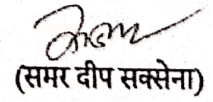 (समर दीप सक्सेना)